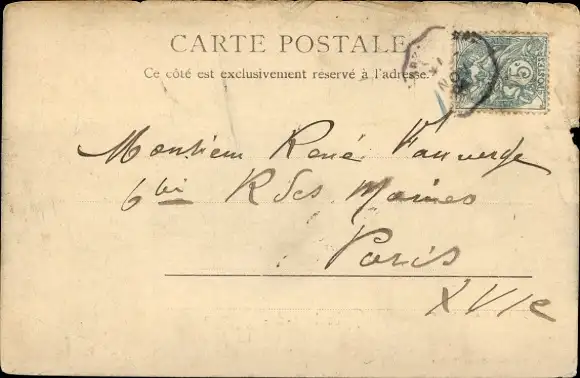 CARTE POSTALE
Ce côté est exclusivement réservé à l'adresse.
5
Monsieur René Fauverge
6 bis R des Marnes
Paris
XVIe